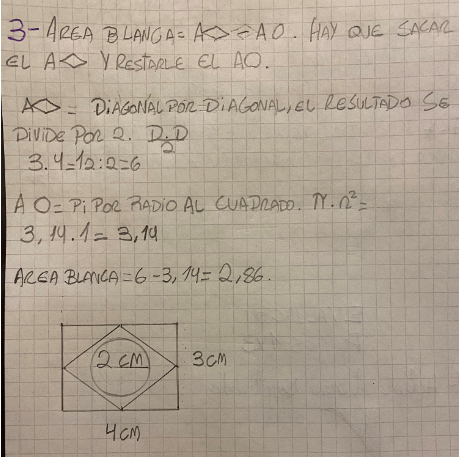 3- AREA BLANCA= A◇ - A O. HAY QUE SACAR
EL A◇ Y RESTARLE EL AO.
A◇ = DIAGONAL POR DIAGONAL, EL RESULTADO SE
DIVIDE POR 2. D.D/2
3.4=12:2=6
A O= PI POR RADIO AL CUADRADO. π.r²=
3,14.1= 3,14
AREA BLANCA=6-3,14= 2,86.
2 CM
3CM
4CM